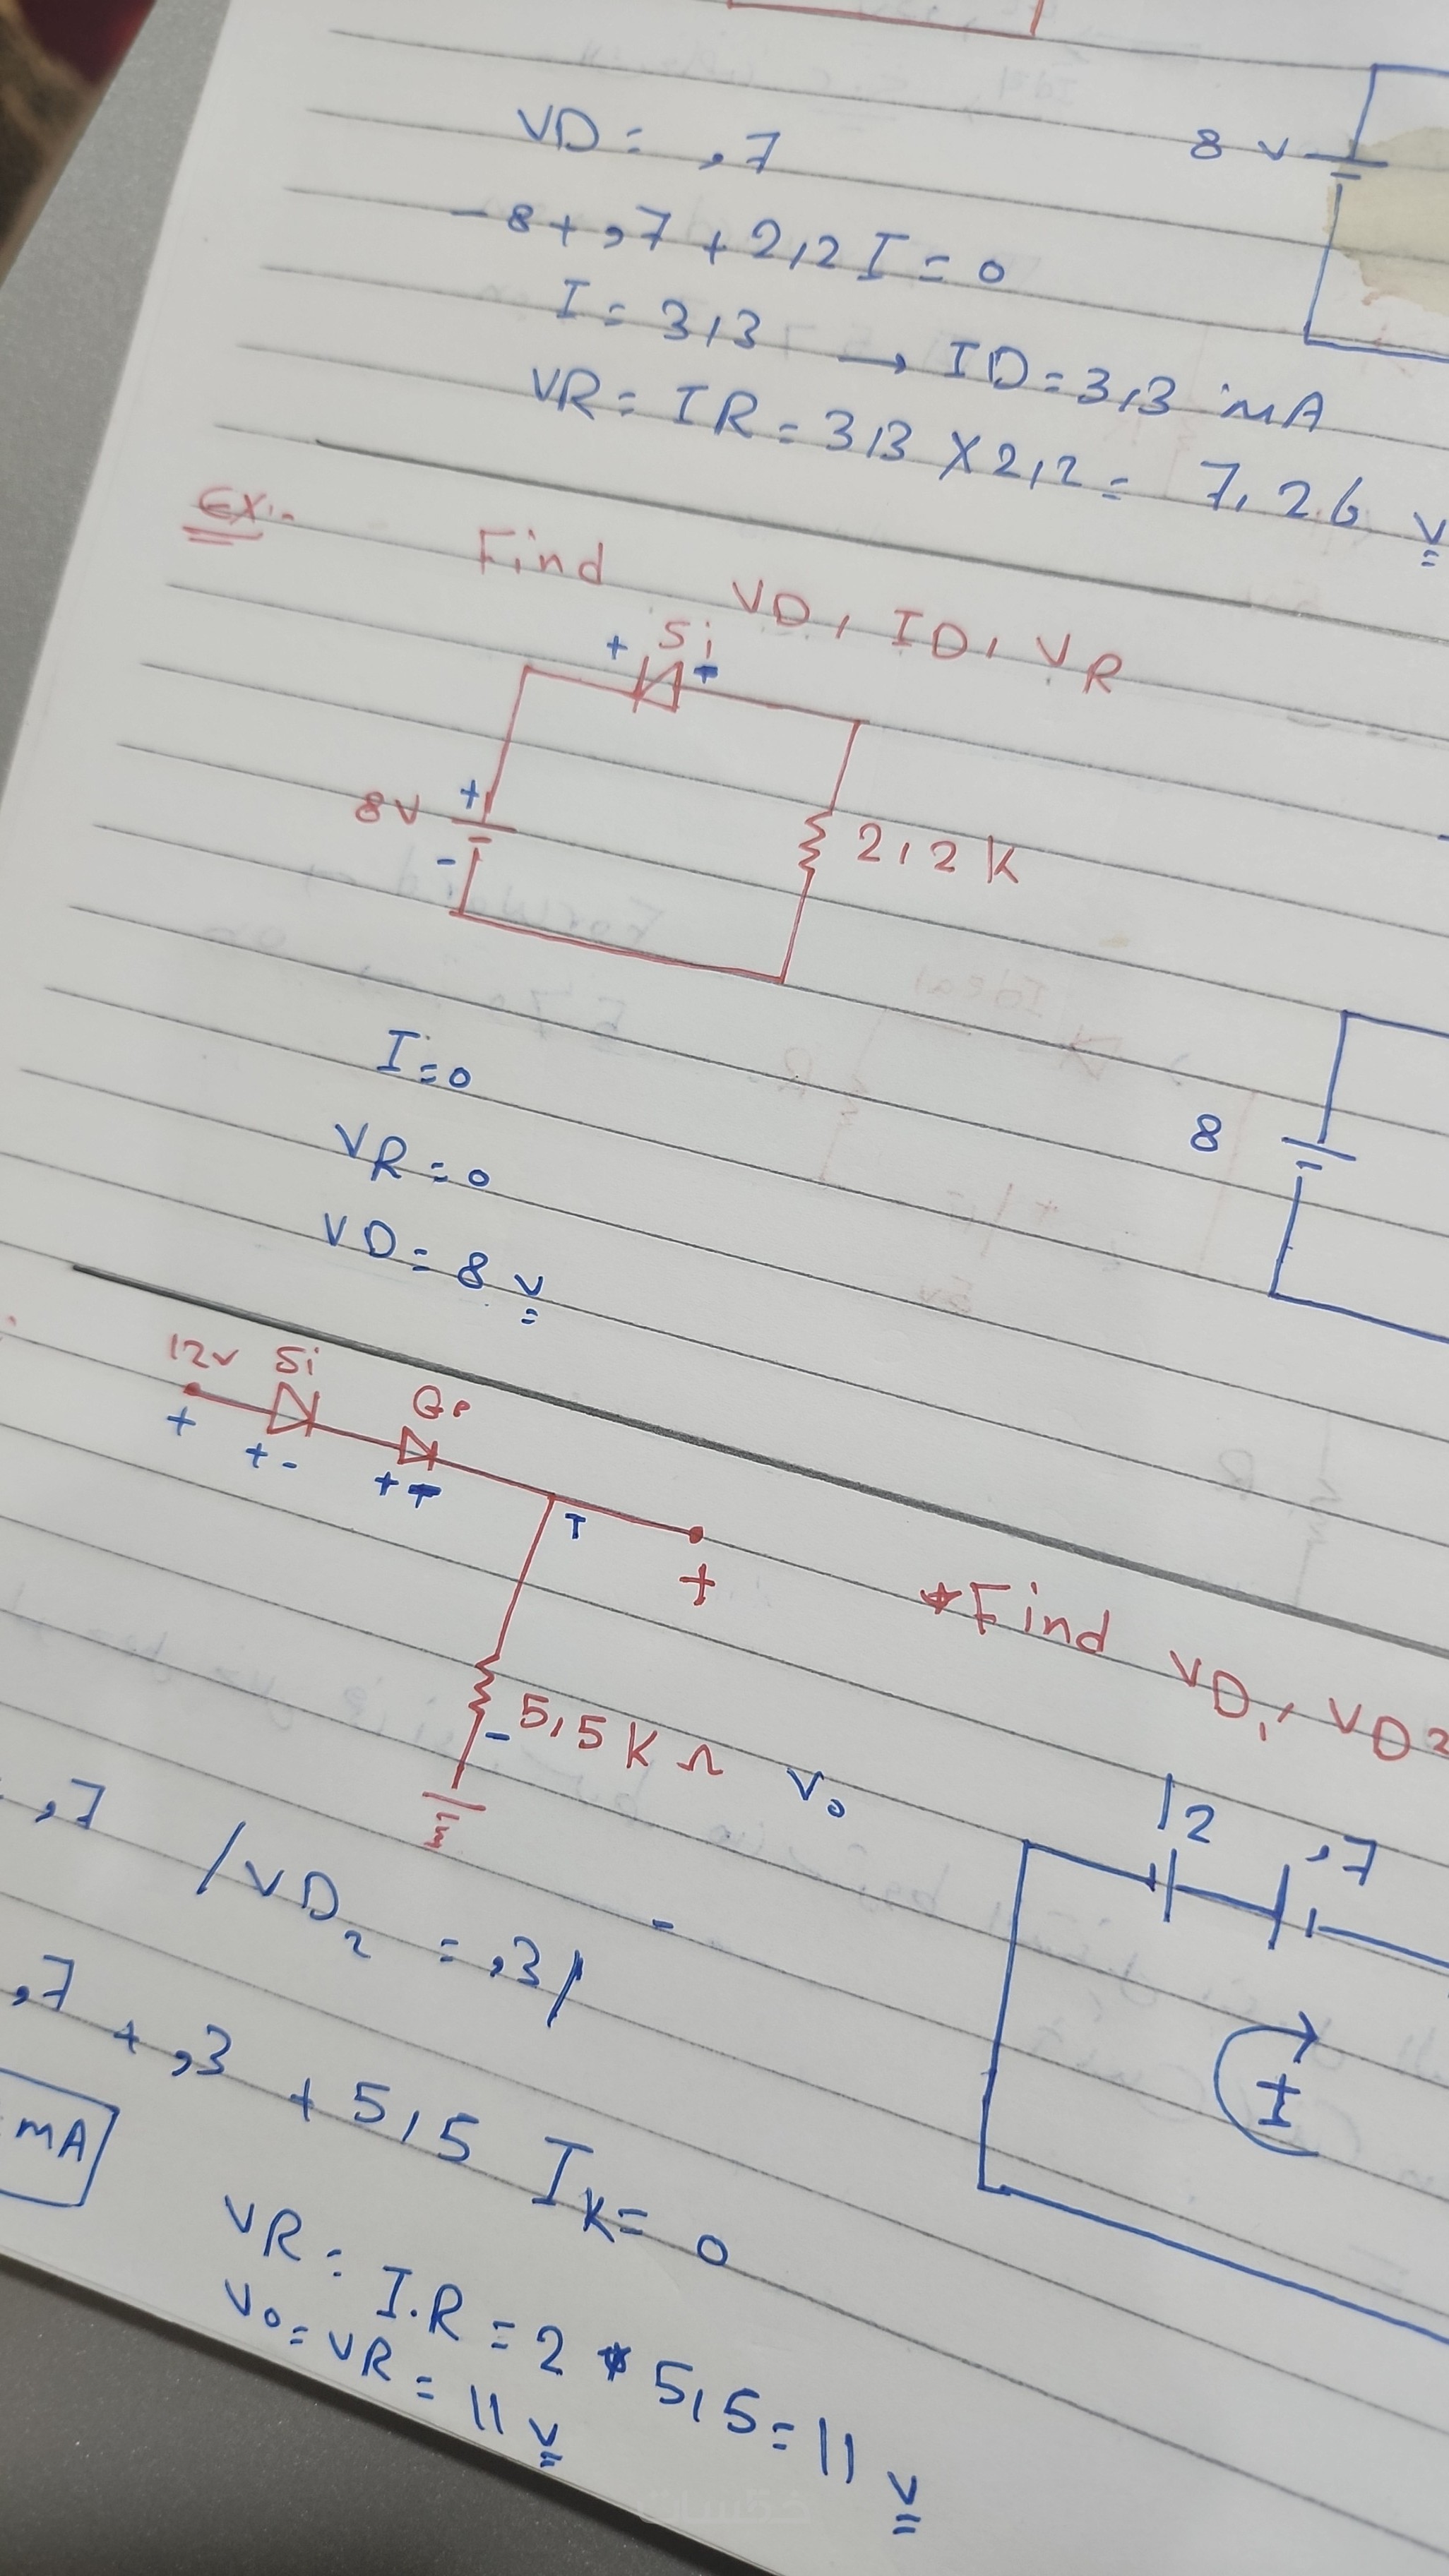 8 v
VD = ,7
-8 + ,7 + 2,2 I = 0
I = 3,3 → ID = 3,3 mA
VR = IR = 3,3 X 2,2 = 7,26 v
Ex:-
Find VD, ID, VR
+ Si -
8V + -
2,2 K
I = 0
VR = 0
VD = 8 v
8
12v Si Ge
+ + - + -
+
+
*Find VD1, VD2
5,5 K Ω
-
Vo
-
12 ,7
,7 / VD2 = ,3 /
,7 + ,3 + 5,5 I K = 0
I
mA
VR = I.R = 2 * 5,5 = 11 v
Vo = VR = 11 v
خمسات